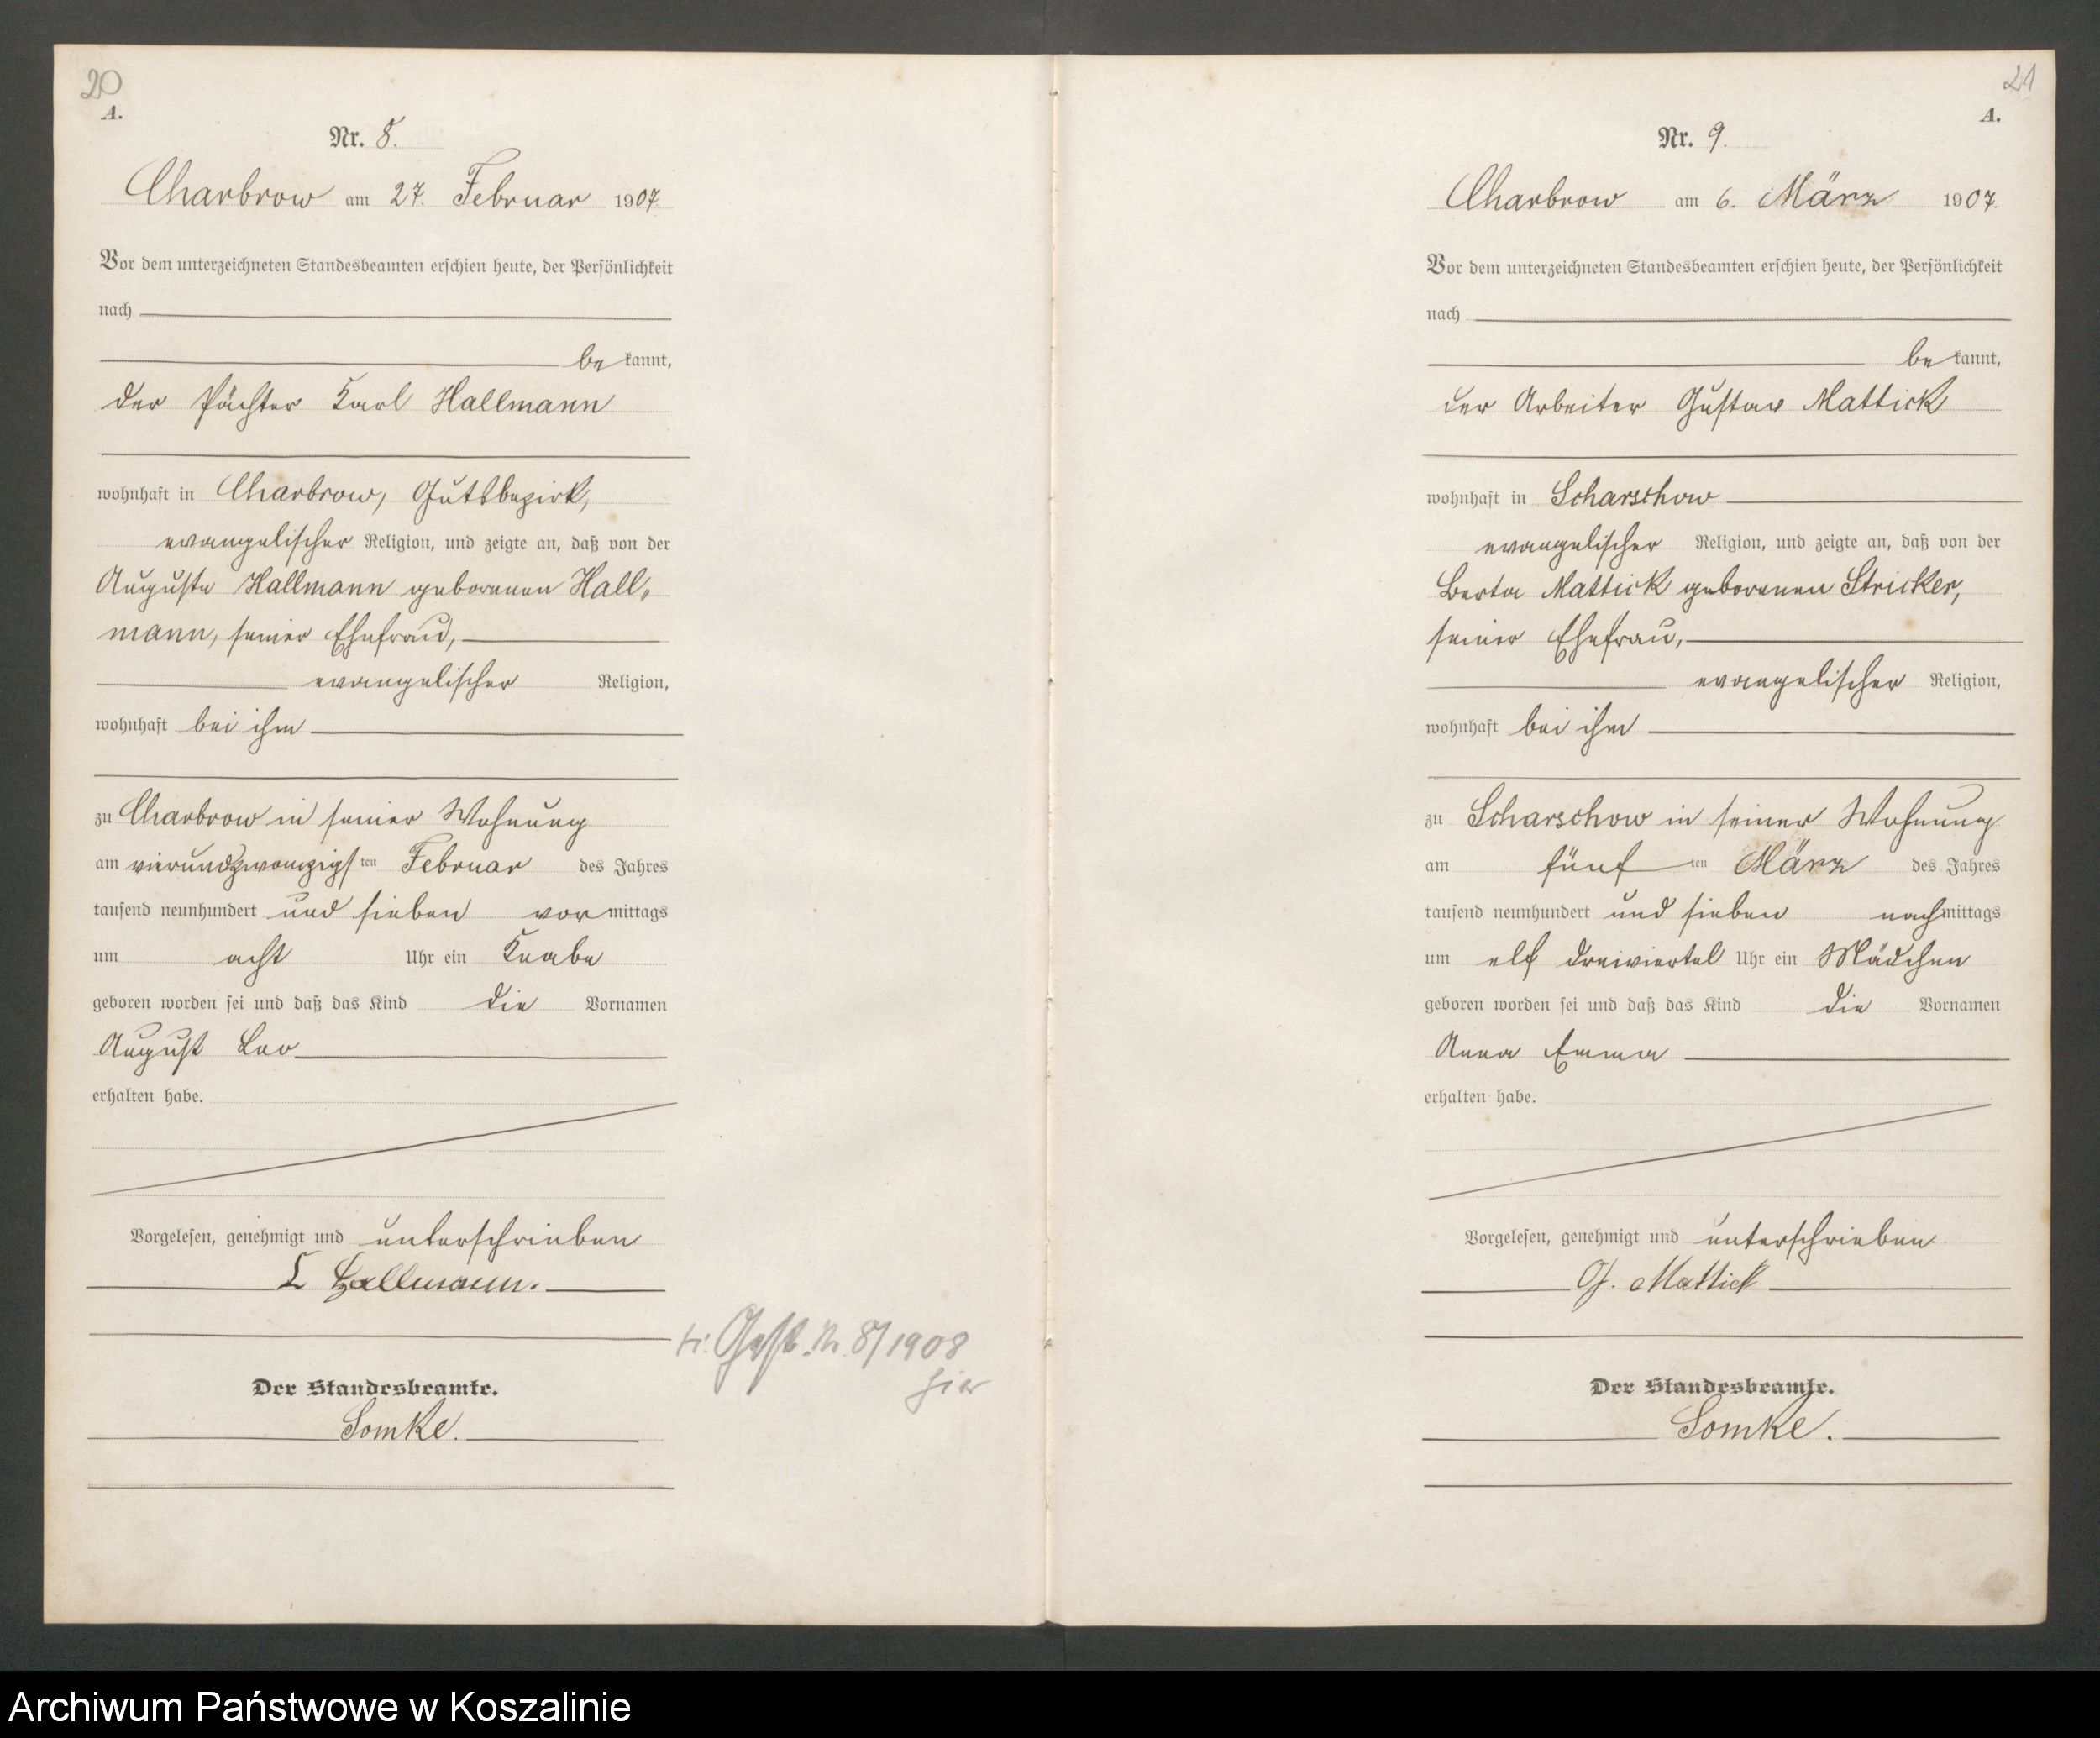 20
A.
Nr. 8.
Charbrow am 27. Februar 1907.
Vor dem unterzeichneten Standesbeamten erschien heute, der Persönlichkeit
nach
be kannt,
der Pächter Karl Hallmann
wohnhaft in Charbrow, Gutsbezirk,
evangelischer Religion, und zeigte an, daß von der
Auguste Hallmann geborenen Hall-
mann, seiner Ehefrau,
evangelischer Religion,
wohnhaft bei ihm
zu Charbrow in seiner Wohnung
am vierundzwanzigsten Februar des Jahres
tausend neunhundert und sieben vormittags
um acht Uhr ein Knabe
geboren worden sei und daß das Kind die Vornamen
August Leo
erhalten habe.
Vorgelesen, genehmigt und unterschrieben
Hallmann.
8/1908
hier
Der Standesbeamte.
Somke.
21
A.
Nr. 9.
Charbrow am 6. März 1907.
Vor dem unterzeichneten Standesbeamten erschien heute, der Persönlichkeit
nach
be kannt,
der Arbeiter Gustav Mattick
wohnhaft in Scharschow
evangelischer Religion, und zeigte an, daß von der
Berta Mattick geborenen Stricker,
seiner Ehefrau,
evangelischer Religion,
wohnhaft bei ihm
zu Scharschow in seiner Wohnung
am fünf ten März des Jahres
tausend neunhundert und sieben nachmittags
um elf dreiviertel Uhr ein Mädchen
geboren worden sei und daß das Kind die Vornamen
Anna Emma
erhalten habe.
Vorgelesen, genehmigt und unterschrieben
G. Mattick
Der Standesbeamte.
Somke.
Archiwum Państwowe w Koszalinie